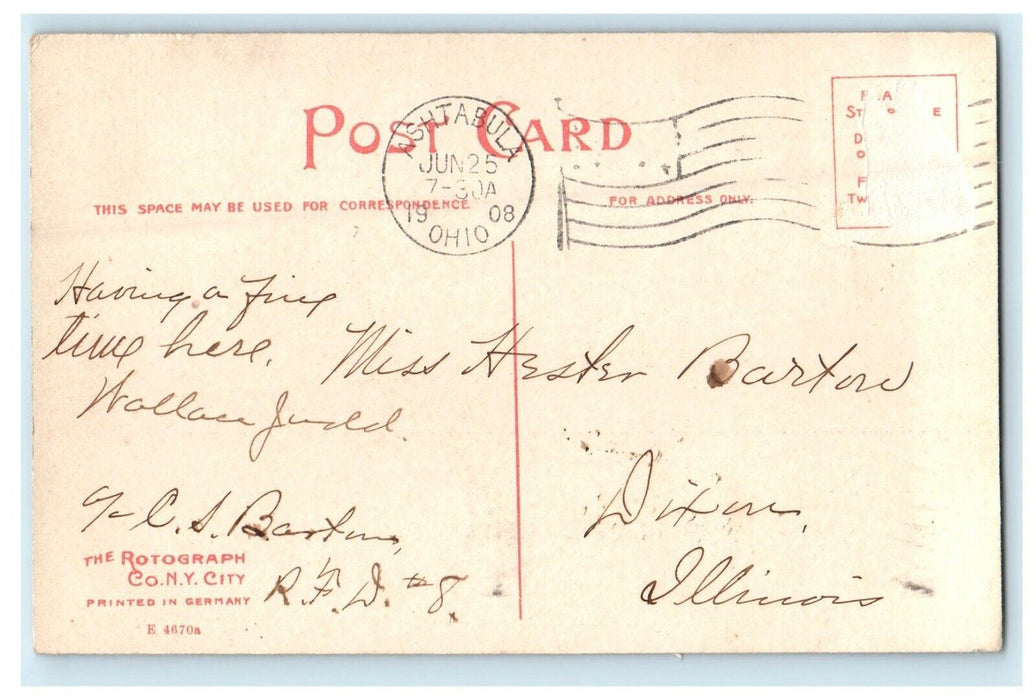 POST CARD
ASHTABULA
JUN 25
7-30A
19 08
OHIO
THIS SPACE MAY BE USED FOR CORRESPONDENCE
FOR ADDRESS ONLY.
Having a fine
time here.
Wallace Judd.
Miss Hester Barton
Dixon,
Illinois
c/o C. S. Barton,
R.F.D. #8.
THE ROTOGRAPH
CO. N.Y. CITY
PRINTED IN GERMANY
E 4670a